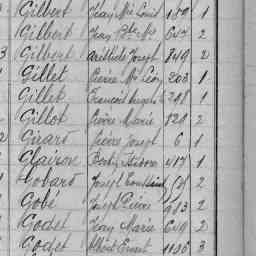 Gilbert Jean Mie Louis 189 1
Gilbert Jean Bte 647 2
3 Gilbert Aristide Joseph 849 2
Gillet Pierre Mie 203 1
Gillet François 298 1
Gillot Pierre Marie 821 2
2 Girard Pierre Joseph 6 1
Glairon Isidore 417 1
Gobard Joseph Toussaint 2
Gobé Joseph Pierre 983 2
Godet Jean Marie 649 2
Godet Albert Ernest 1126 3